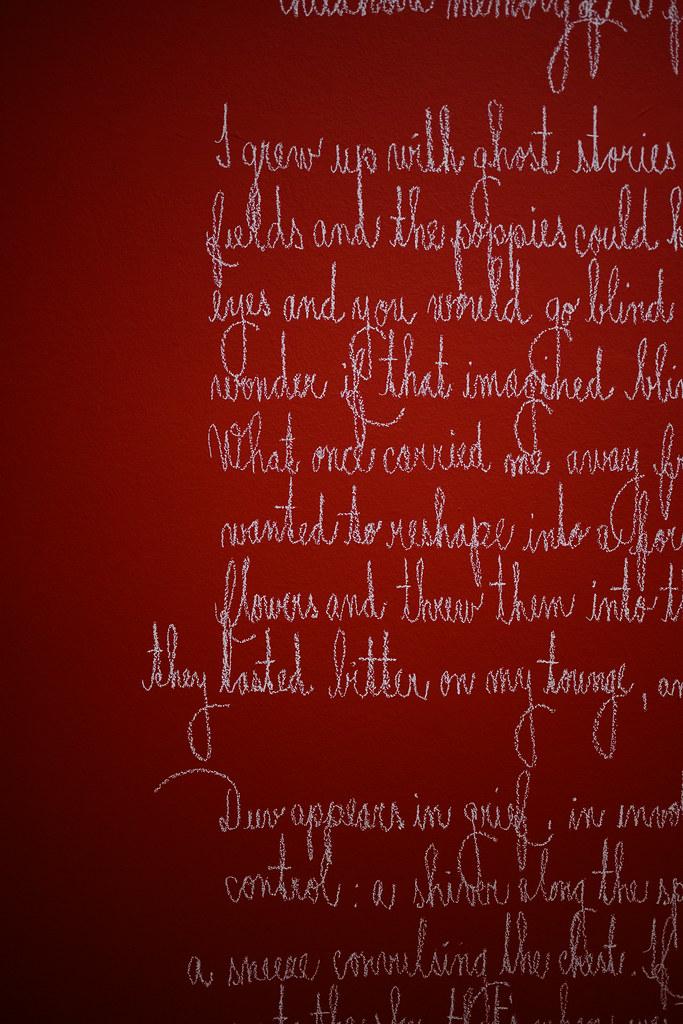 memory of a
I grew up with ghost stories
fields and the poppies could
eyes and you would go blind
wonder if that imagined
What once carried me away
wanted to reshape into a
flowers and threw them into
they tasted bitter on my tounge,
appears in grief, in
control: a shiver along the
a sneeze convulsing the chest. If